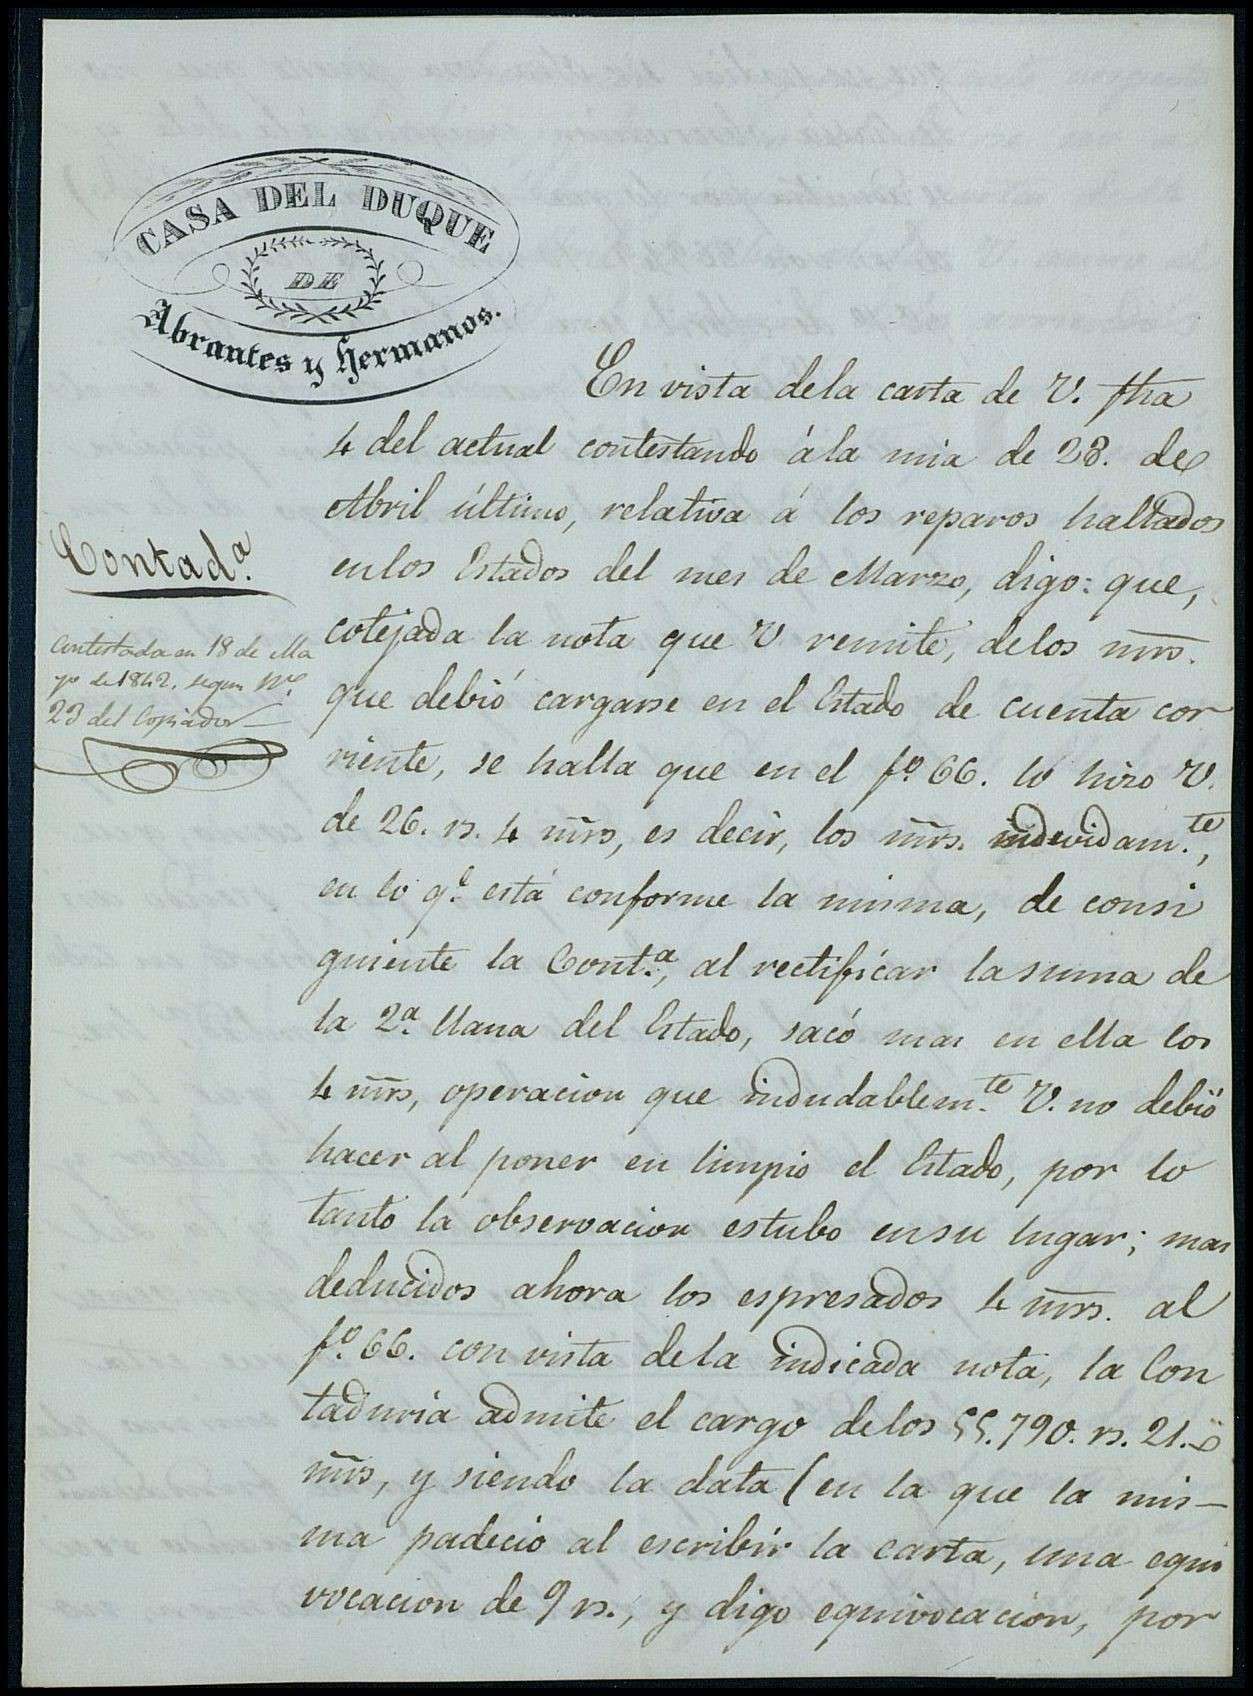 CASA DEL DUQUE
DE
Abrantes y Hermanos.
En vista dela carta de V. fha
4 del actual contestando ála mia de 28. de
Abril último, relativa á los reparos hallados
enlos Estados del mes de Marzo, digo: que,
cotejada la nota que V remite, delos mrs.
que debió cargarse en el Estado de cuenta cor
riente, se halla que en el fº. 66. lo hizo V.
de 26. rs. 4 mrs, es decir, los mrs. indevidam.te,
en lo q.e está conforme la misma, de consi
guiente la Cont.a, al rectificar la suma de
la 2ª. llana del Estado, sacó mas en ella los
4 mrs, operacion que indudablem.te V. no debió
hacer al poner en limpio el Estado, por lo
tanto la observacion estubo ensu lugar; mas
deducidos ahora los espresados 4 mrs. al
fº. 66. con vista dela indicada nota, la Con
taduria admite el cargo delos 55.790. rs. 21.
mrs, y siendo la data (en la que la mis-
ma padeció al escribir la carta, una equi
vocacion de 9 rs., y digo equivocacion, por
Contad.a
Contestada en 18 de Ma
yo de 1842. segun Nº.
23 del Copiador